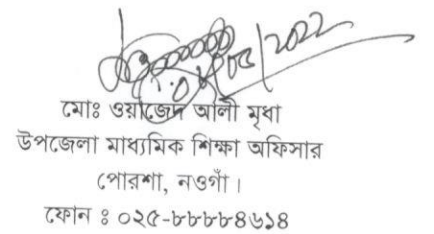 মোঃ ওয়াজেদ আলী মৃধা
উপজেলা মাধ্যমিক শিক্ষা অফিসার
পোরশা, নওগাঁ।
ফোন ঃ ০২৫-৮৮৮৮৪৬১৪